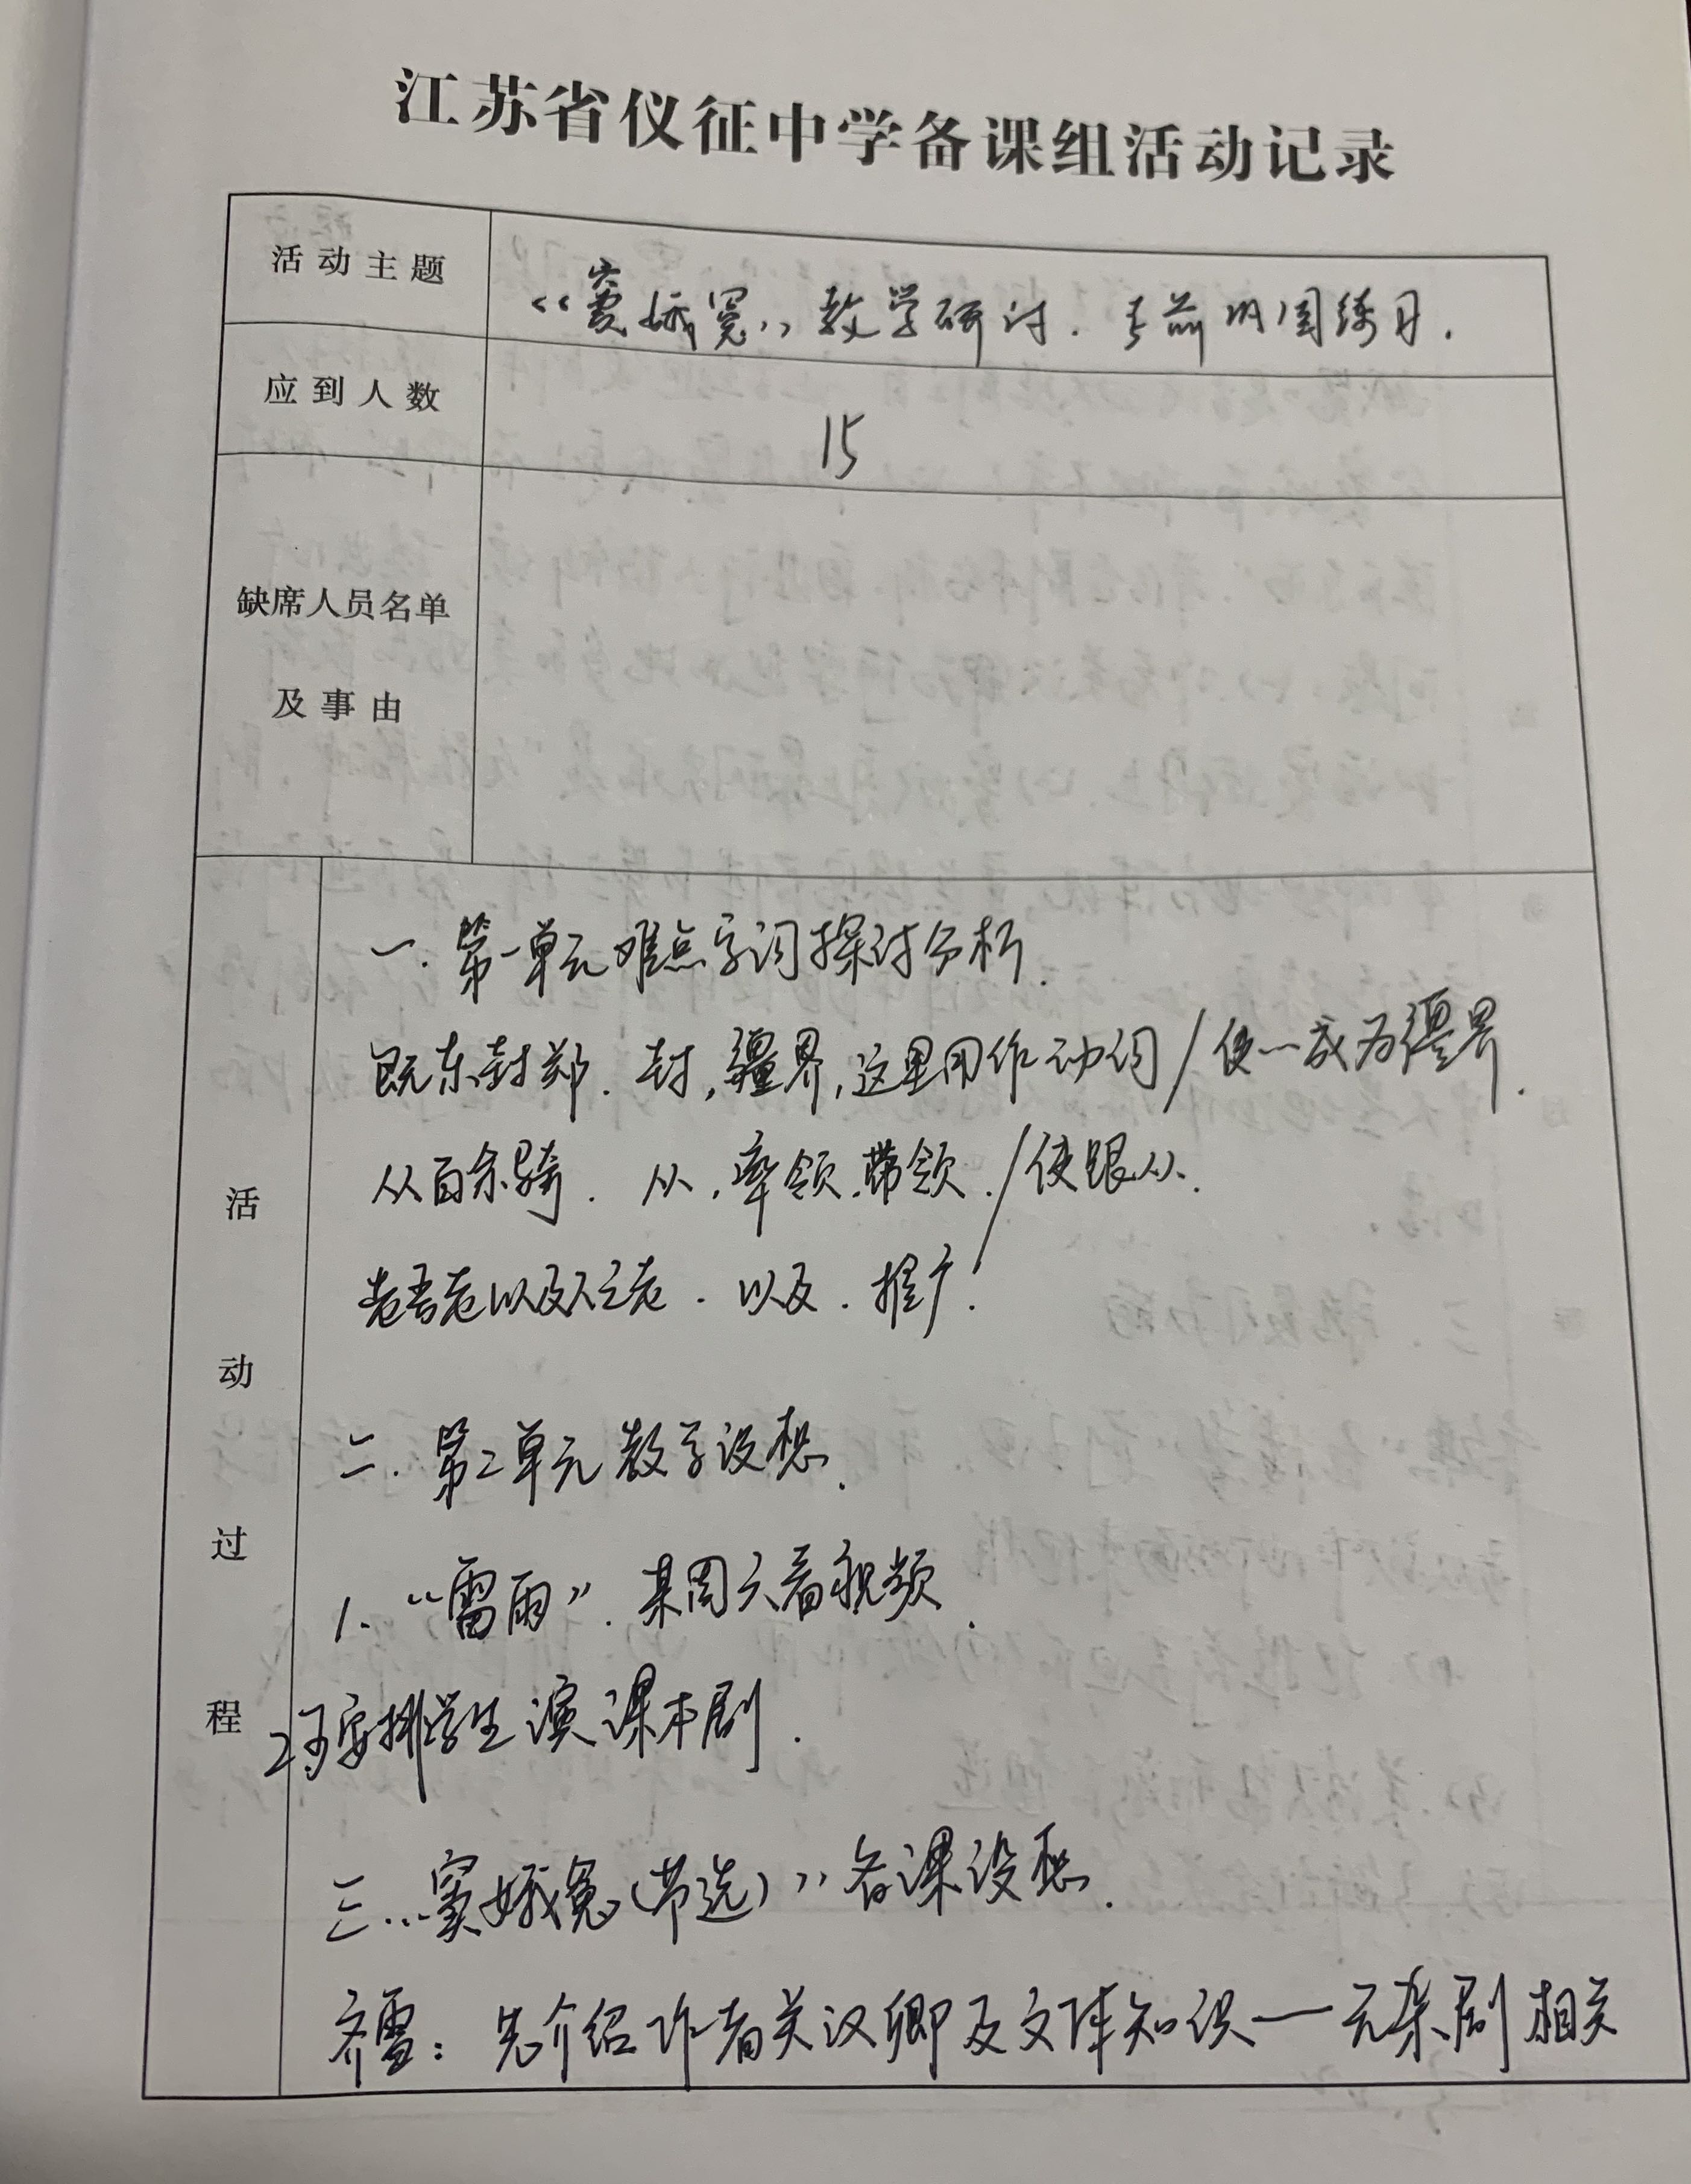 江苏省仪征中学备课组活动记录
活动主题
《窦娥冤》教学研讨.
应到人数
15
缺席人员名单
及事由
活动过程
一.第一单元难点字词探讨分析.
既东封郑.封,疆界,这里用作动词/使…成为疆界.
从百余骑.从,率领.带领./使跟从.
老吾老以及人之老.以及.推广.
二.第二单元教学设想.
1.“雷雨”.某周六看视频.
2.可安排学生演课本剧.
三.《窦娥冤(节选)》备课设想.
齐雪:先介绍作者关汉卿及文体知识—元杂剧相关